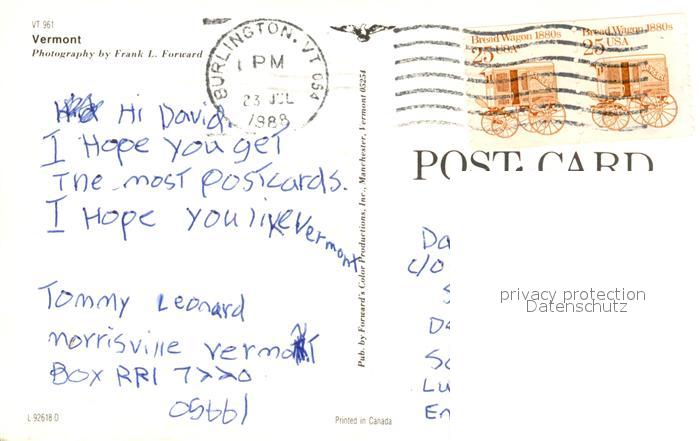 VT 961
Vermont
Photography by Frank L. Forward
BURLINGTON, VT 054
PM
23 JUL
1988
Bread Wagon 1880s
25 USA
Bread Wagon 1880s
25 USA
POST CARD
Hi David
I Hope you get
The most postcards.
I Hope you like Vermont
Tommy Leonard
morrisville vermont
Box RR1
05661
Pub. by Forward's Color Productions, Inc., Manchester, Vermont 05254
Da
c/o
Da
Lu
En
privacy protection
Datenschutz
L-92618-D
Printed in Canada